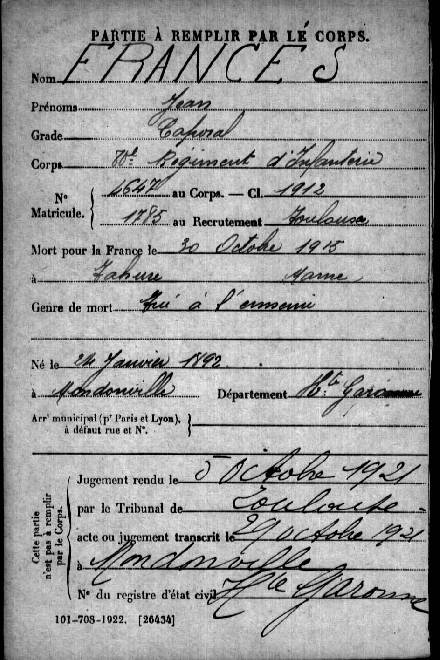 PARTIE À REMPLIR PAR LE CORPS.
Nom FRANCES
Prénoms Jean
Grade Caporal
Corps Régiment d'Infanterie
N° Matricule. 4647 au Corps. — Cl. 1912
1785 au Recrutement Toulouse
Mort pour la France le 30 Octobre 1915
à Tahure Marne
Genre de mort Tué à l'ennemi
Né le 24 Janvier 1892
à Mondonville Département Hte Garonne
Arr' municipal (p' Paris et Lyon),
à défaut rue et N°.
Cette partie n'est pas à remplir par le Corps.
Jugement rendu le 5 Octobre 1921
par le Tribunal de Toulouse
acte ou jugement transcrit le 29 octobre 1921
à Mondonville
N° du registre d'état civil Hte Garonne
101-708-1922. [26434]